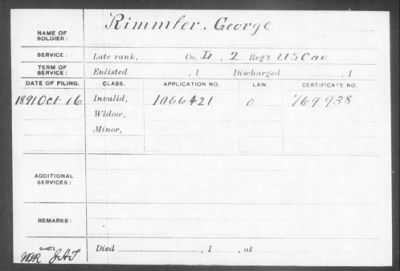 Rimmler, George
NAME OF
SOLDIER:
SERVICE: Late rank, Co. D, 2 Reg't U S Cav
TERM OF
SERVICE: Enlisted , 1 Discharged , 1
DATE OF FILING. CLASS. APPLICATION NO. LAW. CERTIFICATE NO.
1891 Oct. 16 Invalid, 1066421 0 769938
Widow,
Minor,
ADDITIONAL
SERVICES:
REMARKS:
Died , 1 , at